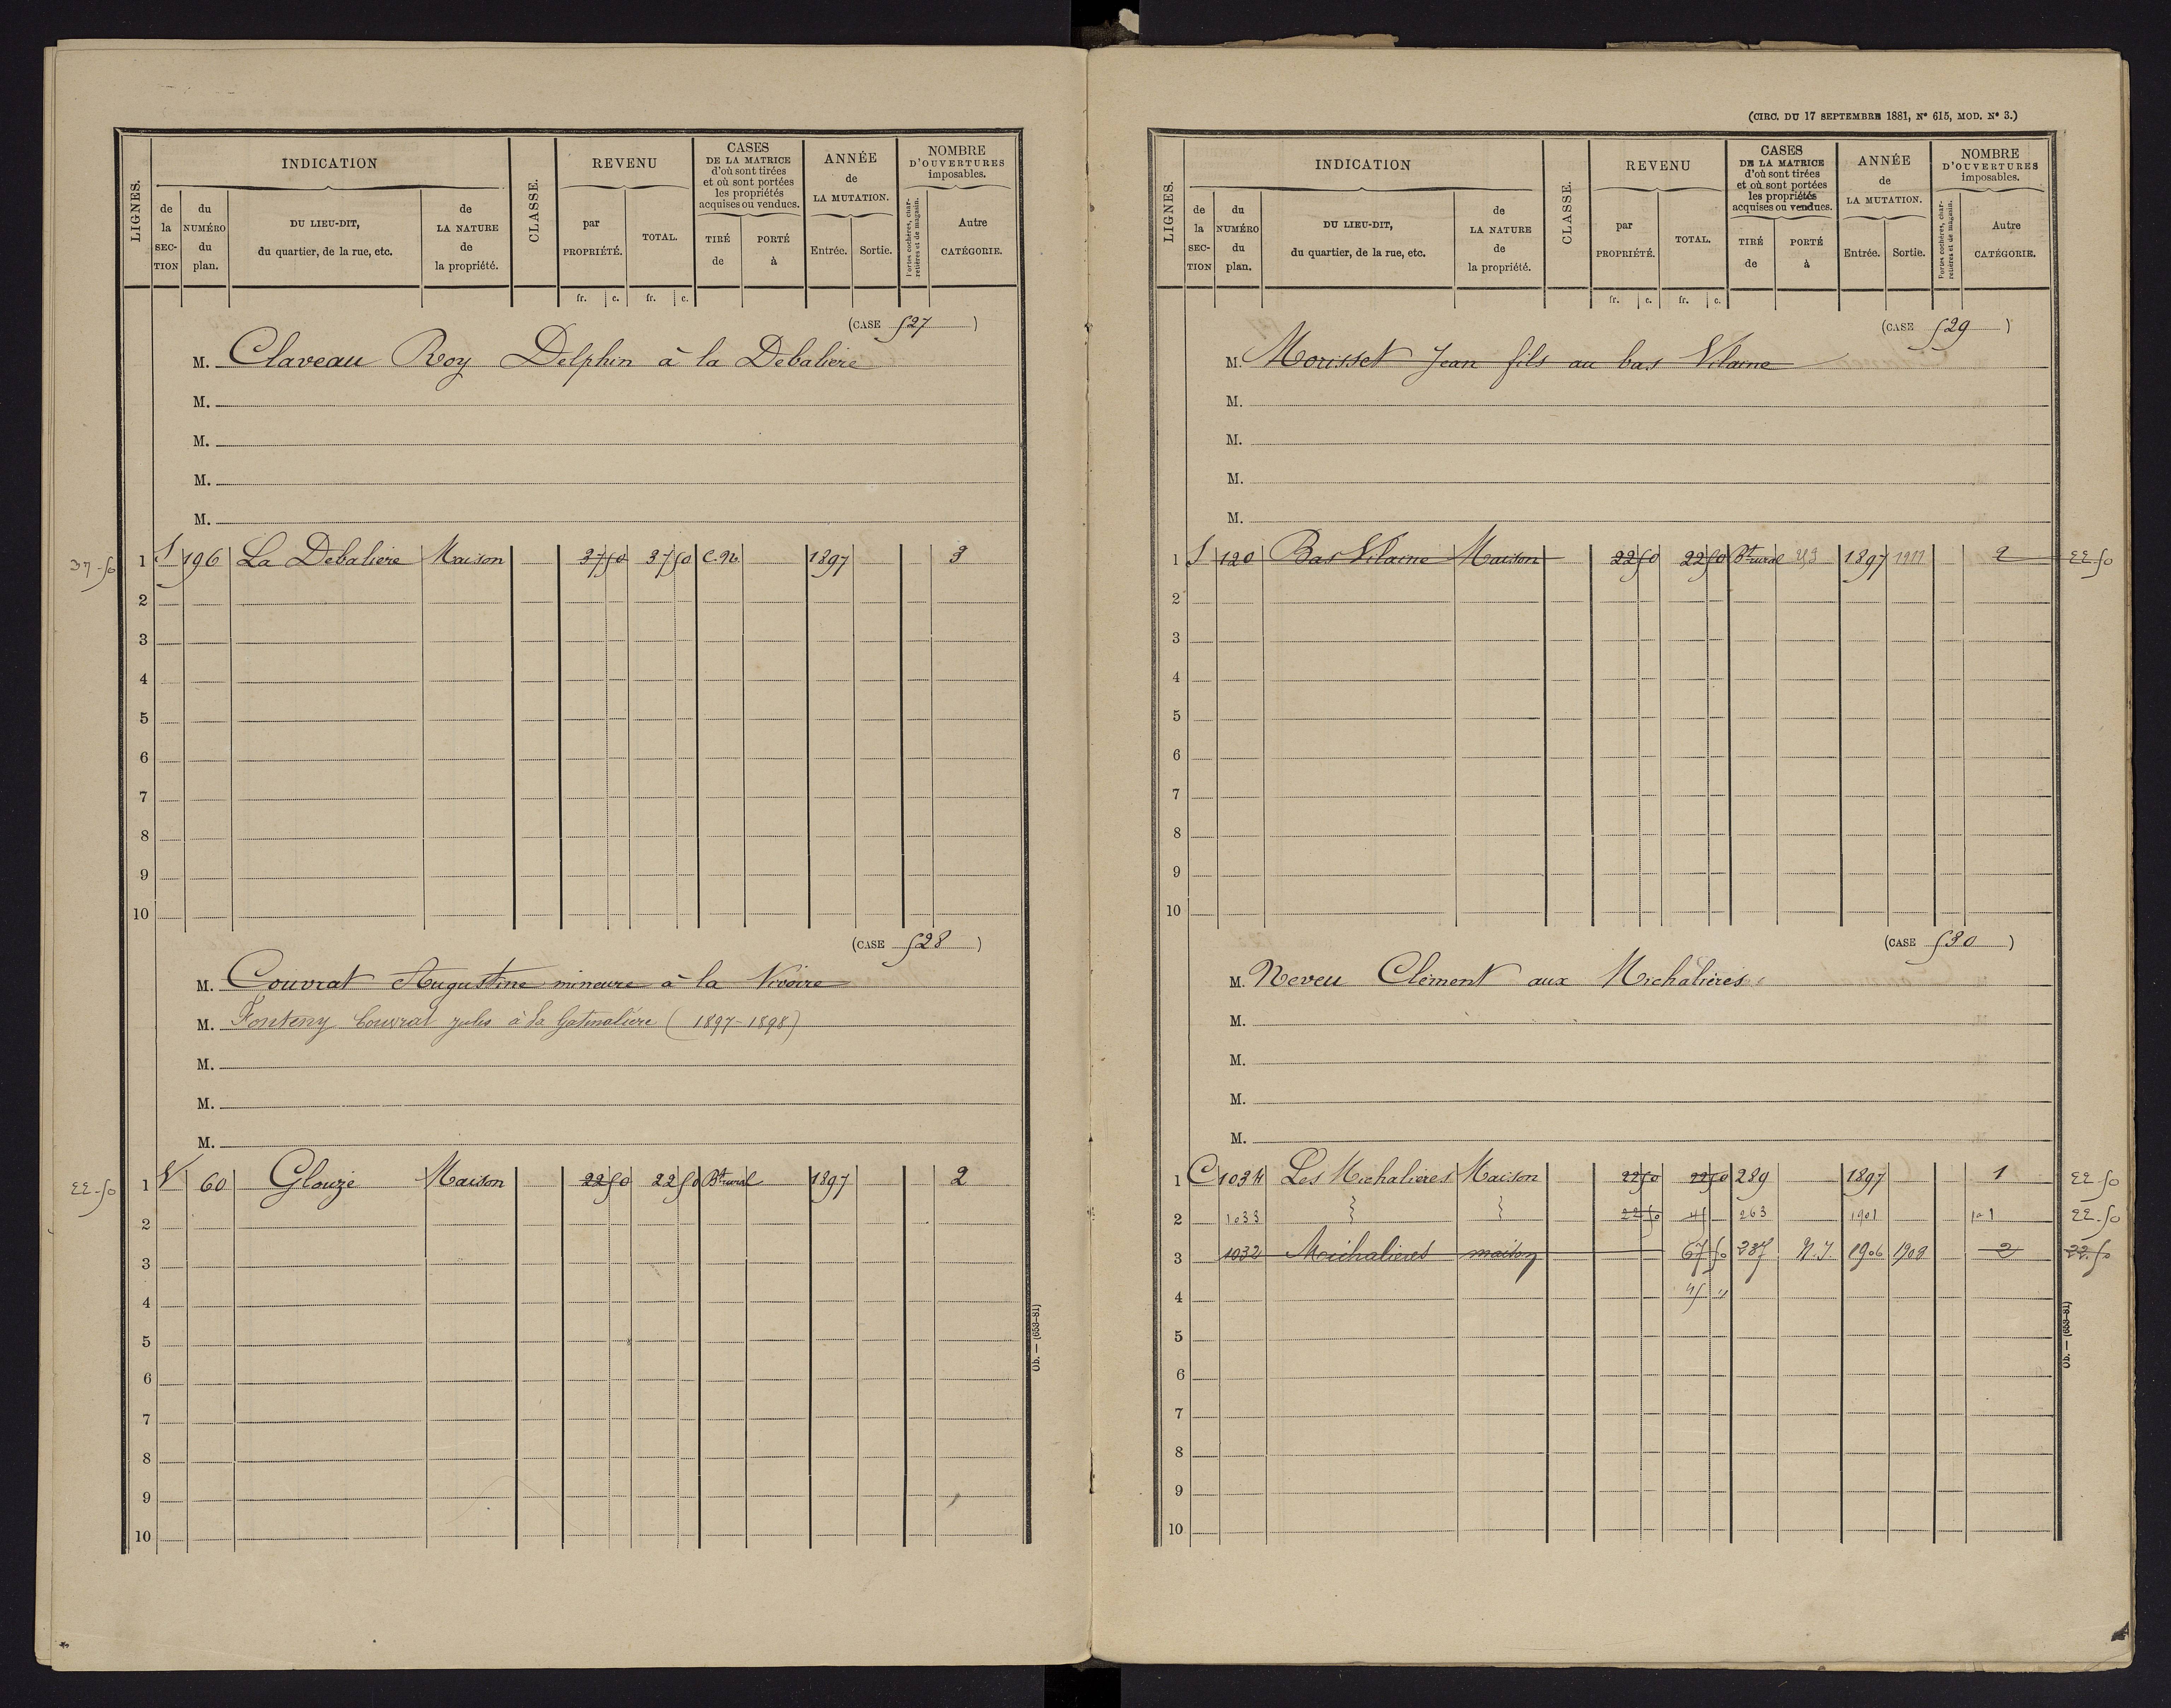 LIGNES.
INDICATION
de la SECTION
du NUMÉRO du plan.
DU LIEU-DIT, du quartier, de la rue, etc.
de LA NATURE de la propriété.
CLASSE.
REVENU
par PROPRIÉTÉ.
TOTAL.
fr. c. fr. c.
CASES DE LA MATRICE d'où sont tirées et où sont portées les propriétés acquises ou vendues.
TIRÉ de
PORTÉ à
ANNÉE de LA MUTATION.
Entrée. Sortie.
NOMBRE D'OUVERTURES imposables.
Portes cochères, charretières et de magasin.
Autre CATÉGORIE.
(CASE 527)
M. Claveau Roy Delphin à la Debaliere
M.
M.
M.
M.
37-50 1 S 196 La Debaliere Maison 37 50 37 50 C.N. 1897 3
2
3
4
5
6
7
8
9
10
(CASE 528)
M. Couvrat Augustine mineure à la Vivoire
M. Fonteny Couvrat jules à la Gatinalière (1897-1898)
M.
M.
M.
22-50 1 V 60 Glouze Maison 22 50 22 50 Bt rural 1897 2
2
3
4
5
6
7
8
9
10
Ob. — (653-81)
(CIRC. DU 17 SEPTEMBRE 1881, N° 615, MOD. N° 3.)
LIGNES.
INDICATION
de la SECTION
du NUMÉRO du plan.
DU LIEU-DIT, du quartier, de la rue, etc.
de LA NATURE de la propriété.
CLASSE.
REVENU
par PROPRIÉTÉ.
TOTAL.
fr. c. fr. c.
CASES DE LA MATRICE d'où sont tirées et où sont portées les propriétés acquises ou vendues.
TIRÉ de
PORTÉ à
ANNÉE de LA MUTATION.
Entrée. Sortie.
NOMBRE D'OUVERTURES imposables.
Portes cochères, charretières et de magasin.
Autre CATÉGORIE.
(CASE 529)
M. Morisset Jean fils au bas Vilaine
M.
M.
M.
M.
1 S 120 Bas Vilaine Maison 22 50 22 50 Bt rural 1897 2 22-50
2
3
4
5
6
7
8
9
10
(CASE 530)
M. Neveu Clément aux Michalières
M.
M.
M.
M.
1 C 1034 Les Michalieres Maison 22 50 22 50 289 1897 1 22 50
2 1033 22 50 45 263 1901 1 22-50
3 1032 Michalieres maison 67 50 287 N.I. 1906 1908 2 22.50
4 45 "
5
6
7
8
9
10
Ob. — (653-81)